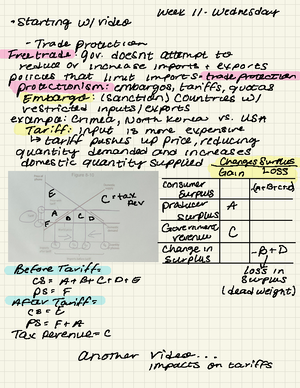 Week 11 - Wednesday
• Starting w/ video
- Trade protection
Free trade: gov. doesnt attempt to
reduce or increase imports + exports
policies that limit imports - trade protection
Protectionism: embargos, tariffs, quotas
Embargo: (sanction) countries w/
restricted inputs/exports
example: Crimea, North Korea vs. USA
Tariff: input is more expensive
↳ tariff pushes up price, reducing
quantity demanded and increases
domestic quantity supplied
Changes Surplus
Gain Loss
Consumer Surplus -(A+B+C+D)
Producer Surplus A
Government revenue C
Change in Surplus -B+D
Loss in Surplus
(dead weight)
E
F A B C D
C = tax rev
Before Tariff =
CS = A+B+C+D+E
PS = F
After Tariff =
CS = E
PS = F+A
Tax Revenue = C
Another video...
impacts on tariffs